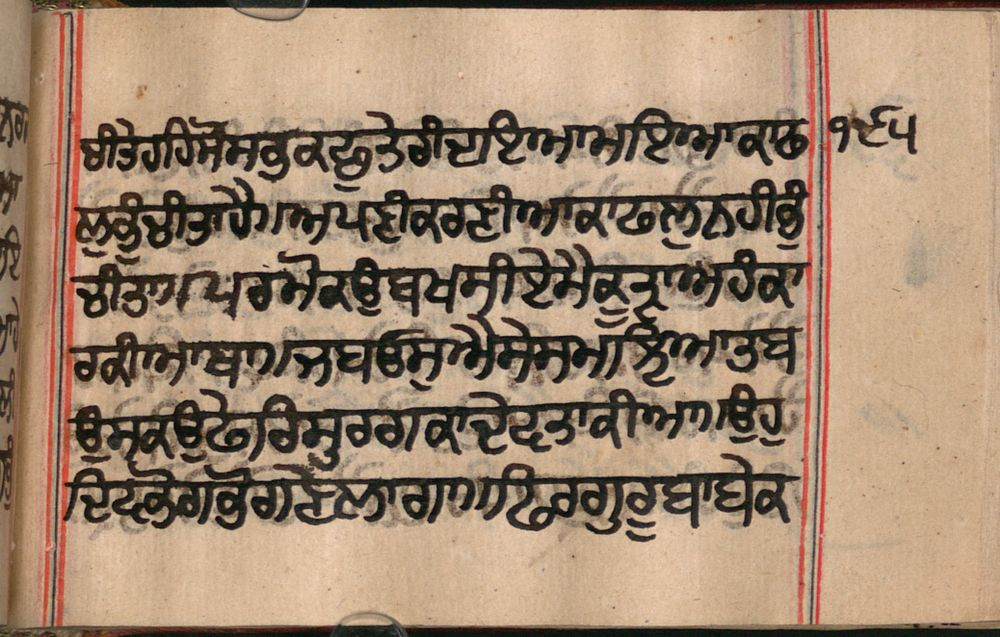 ਚੀਤੇ ਹਹਿ ਸੋ ਸਭੁ ਕਛੁ ਤੇਰੀ ਦਇਆ ਮਇਆ ਕਾ ਫ ੧੬੫
ਲੁ ਭੁੰਚੀਤਾ ਹੈ॥ ਅਪਣੀ ਕਰਣੀਆ ਕਾ ਫਲੁ ਨਹੀ ਭੁੰ
ਚੀਤਾ॥ ਪਰ ਮੋਕਉ ਬਖਸੀਏ ਮੈ ਕੂੜਾ ਅਹੰਕਾ
ਰ ਕੀਆ ਥਾ॥ ਜਬ ਉਸੁ ਐਸੇ ਸਮਝਿਆ ਤਬ
ਉਸਕਉ ਫੇਰਿ ਸੁਰਗ ਕਾ ਦੇਵਤਾ ਕੀਆ॥ ਉਹੁ
ਦਿਵ ਭੋਗ ਭੋਗਣੇ ਲਾਗਾ॥ ਫਿਰ ਗੁਰੂ ਬਾਬੇ ਕ